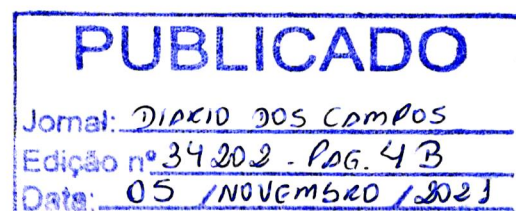 PUBLICADO
Jornal: DIARIO DOS CAMPOS
Edição nº 34202 - PAG. 4 B
Data: 05 / NOVEMBRO / 2021